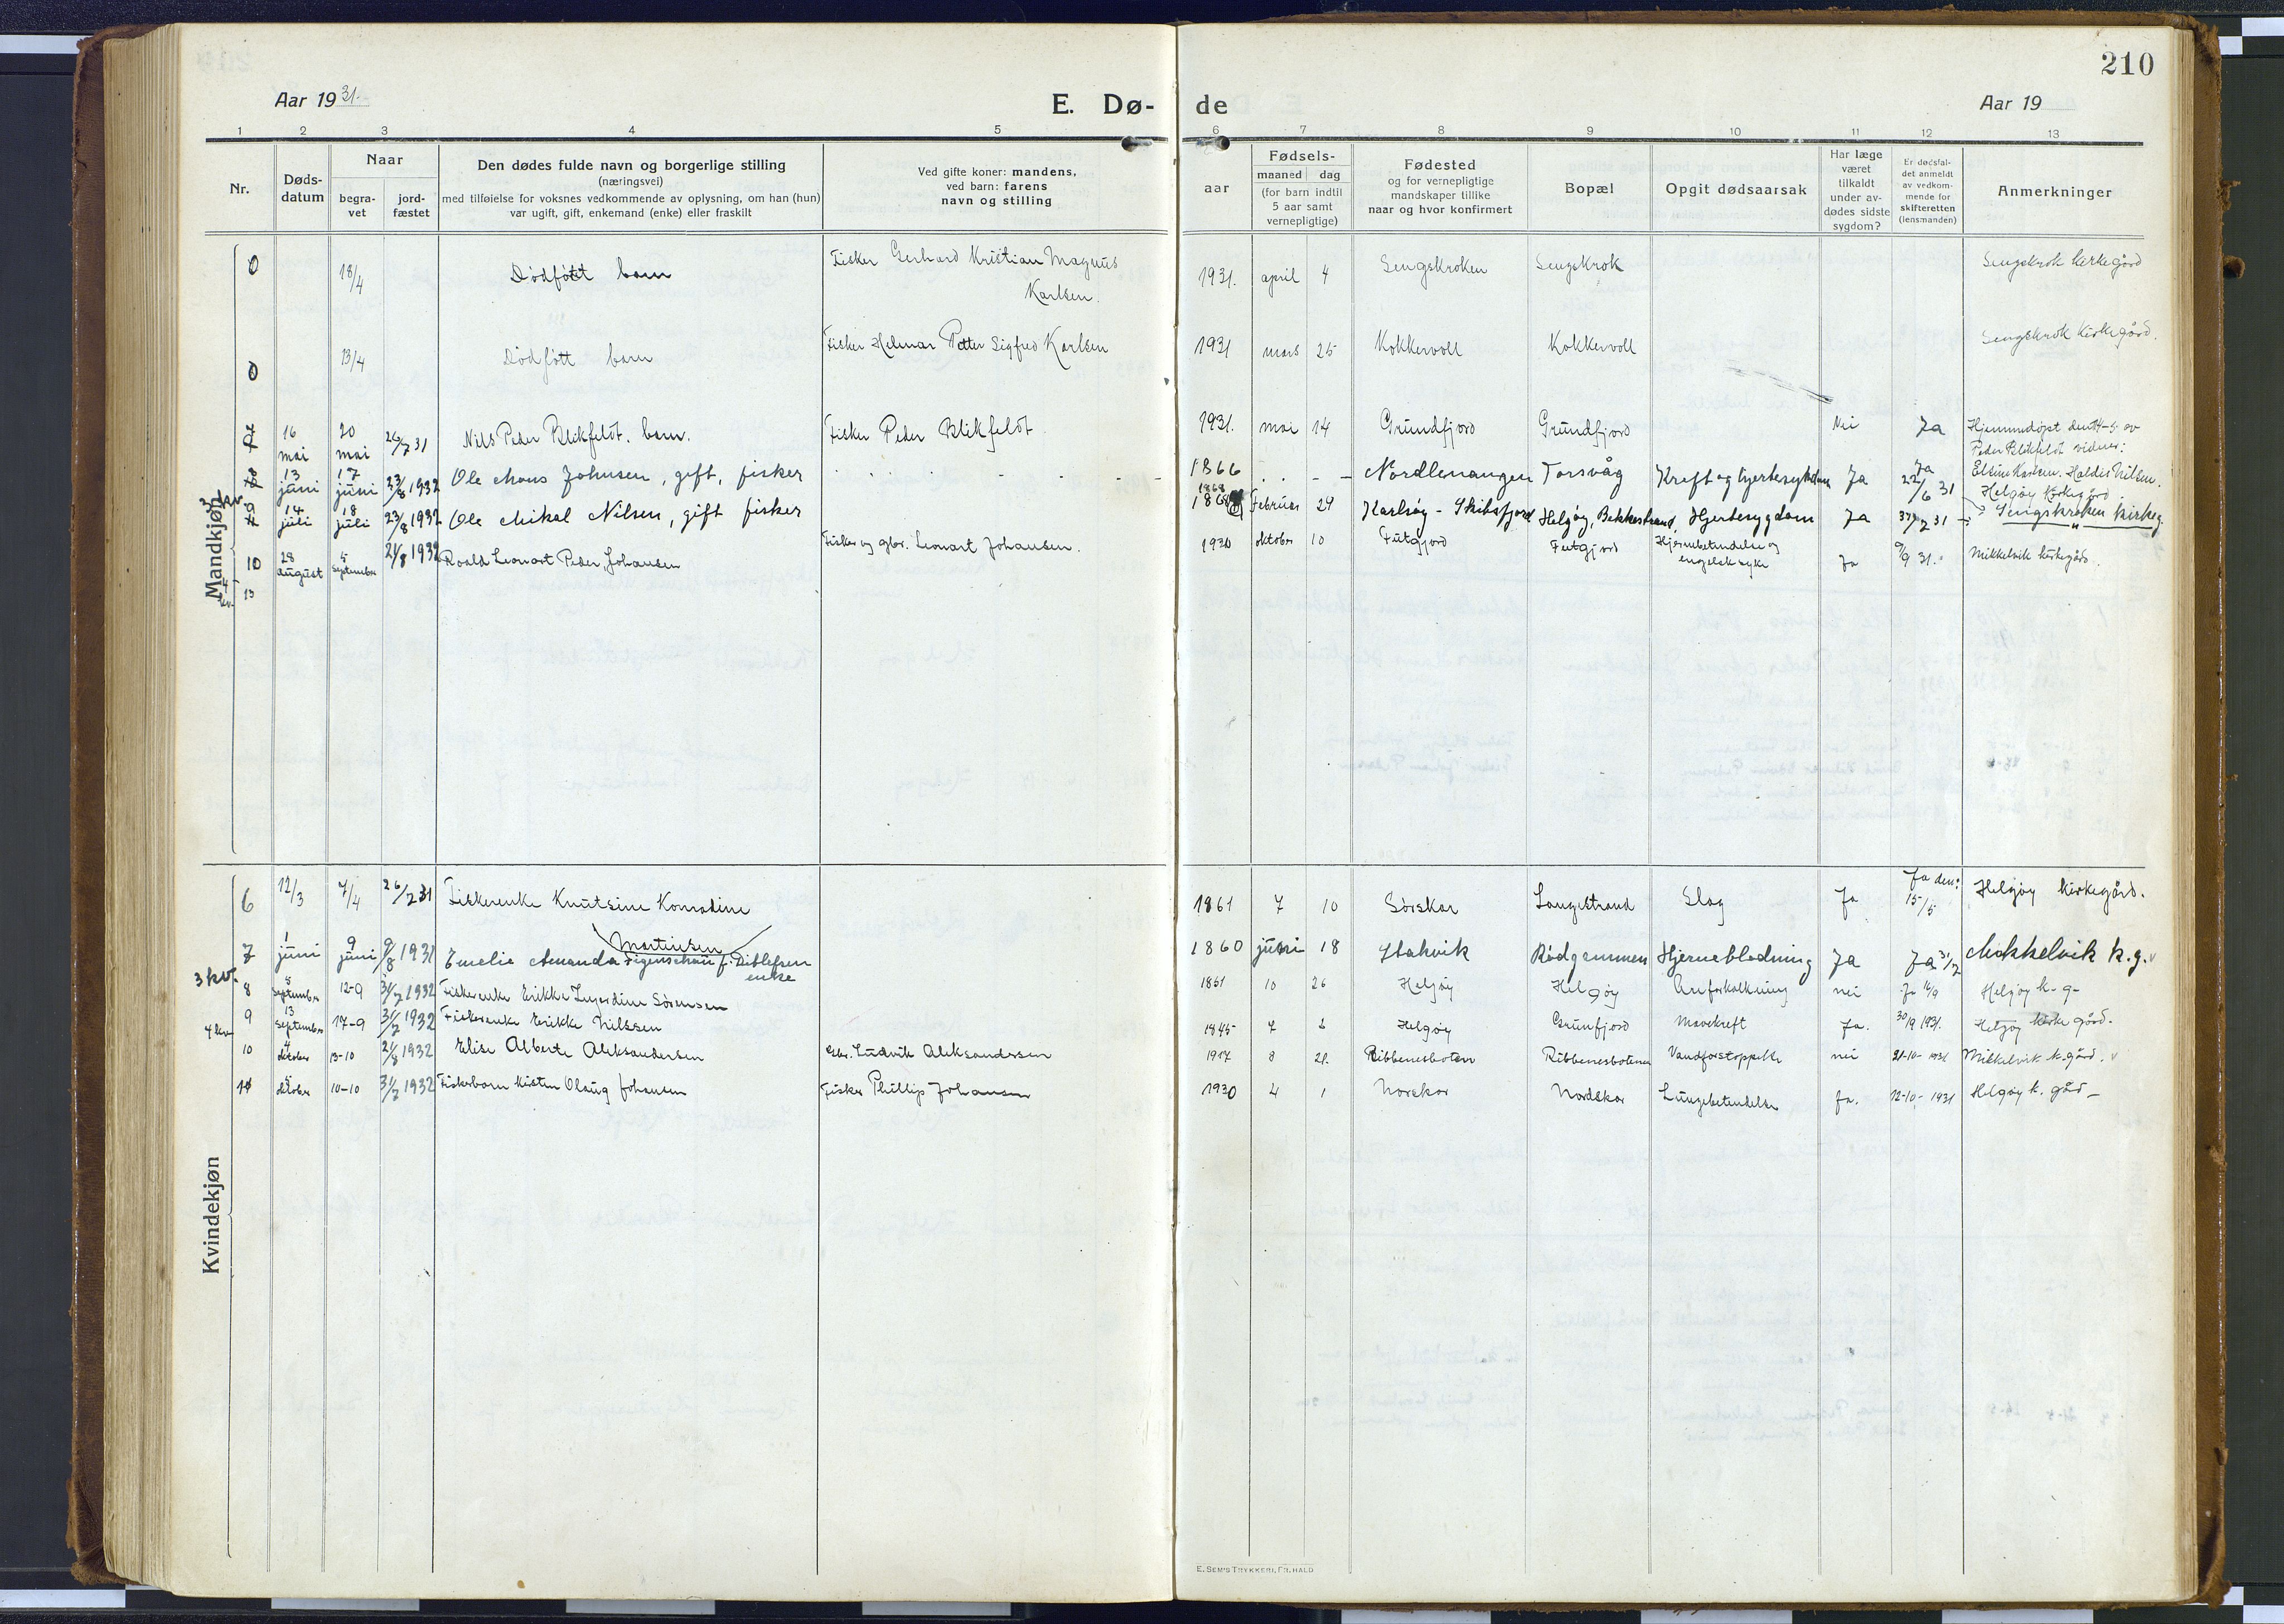 210
Aar 1931.
E. Dø-
de
Aar 19
1 2 3 4 5 6 7 8 9 10 11 12 13
Nr.
Døds-
datum
Naar
begra-
vet
jord-
fæstet
Den dødes fulde navn og borgerlige stilling
(næringsvei)
med tilføielse for voksnes vedkommende av oplysning, om han (hun)
var ugift, gift, enkemand (enke) eller fraskilt
Ved gifte koner: mandens,
ved barn: farens
navn og stilling
aar
Fødsels-
maaned dag
(for barn indtil
5 aar samt
vernepligtige)
Fødested
og for vernepligtige
mandskaper tillike
naar og hvor konfirmert
Bopæl
Opgit dødsaarsak
Har læge
været
tilkaldt
under av-
dødes sidste
sygdom?
Er dødsfal-
det anmeldt
av vedkom-
mende for
skifteretten
(lensmanden)
Anmerkninger
Mandkjøn
0 18/4 Dødfött barn Fisker Gerhard Kristian Magnus
Karlsen. 1931. april 4 Sengskroken Sengskrok Sengskrok kirkegård
0 13/4 Dødfött barn Fisker Helmar Petter Sigfred Karlsen 1931 mars 25 Kokkervoll Kokkervoll Sengskrok Kirkegård.
16 mai 20 mai 26/7 31 Nils Peder Blikfeldt. barn. Fisker Peder Blikfeldt 1931. mai 14 Grundfjord Grundfjord Nei Ja Hjemmedöpt den 14-5 av
Peder Blikfeldt vidner:
13 juni 17 juni 23/8 1932 Ole Mons Johnsen, gift, fisker 1866 Nordlenangen Torsvåg Kreft og hjertesykdom Ja Ja 22/6 31
Helgöy Kirkegård
14 juli 18 juli 23/8 1932 Ole Mikal Nilsen, gift fisker 1868 Februar 29 Karlsöy - Skibsfjord Helgöy, Bekkestrand, Hjertesygdom Ja Sengskroken kirkeg.
10 28 august 5 September 21/8 1932 Roald Leonart Peder Johansen Fisker og gbr. Leonart Johansen. 1930 oktober 10 Futgjord Futgjord Hjernebetendelse og
engelsk syke Ja 9/9 31. Mikkelvik kirkegård.
Kvindekjøn
6 12/3 7/4 26/7 31 Fiskerenke Knutsine Konradine
Martinsen 1861 7 10 Sörskar Langestrand Slag Ja Ja den: 15/5 Helgöy kirkegård.
7 1 juni 9 juni 9/8 1931 Emelie Amanda Figenschau f. Ditlefsen
enke 1860 juni 18 Stakvik Rödgammen Hjerneblødning Ja Ja 31/7 Mikkelvik k.g.
3 kv.
8 5 September 12-9 31/7 1932 Fiskerenke Erikke Ingerdine Sörensen 1861 10 26 Helgöy Helgöy Åreforkalkning nei Ja 16/9 Helgöy k-g-
4 kv
9 13 September 17-9 31/7 1932 Fiskerenke Erikke Nilssen 1845 7 2 Helgöy Grunfjord Mavekreft Ja. 30/9 1931. Helgöy kirkegård.
10 4 oktober 13-10 21/8 1932 Elise Alberte Aleksandersen Gbr. Ludvik Aleksandersen 1917 8 21. Ribbenesboten Ribbenesboten Vandforstoppelse nei 21-10-1931 Mikkelvik k.gård.
11 5 oktober 10-10 31/7 1932 Fiskerbarn Kirsten Olaug Johansen Fisker Phillip Johansen 1930 4 1 Norskar Nordskar Lungebetendelse Ja. 12-10-1931 Helgöy k. gård-
E. SEM'S TRYKKERI, FR.HALD